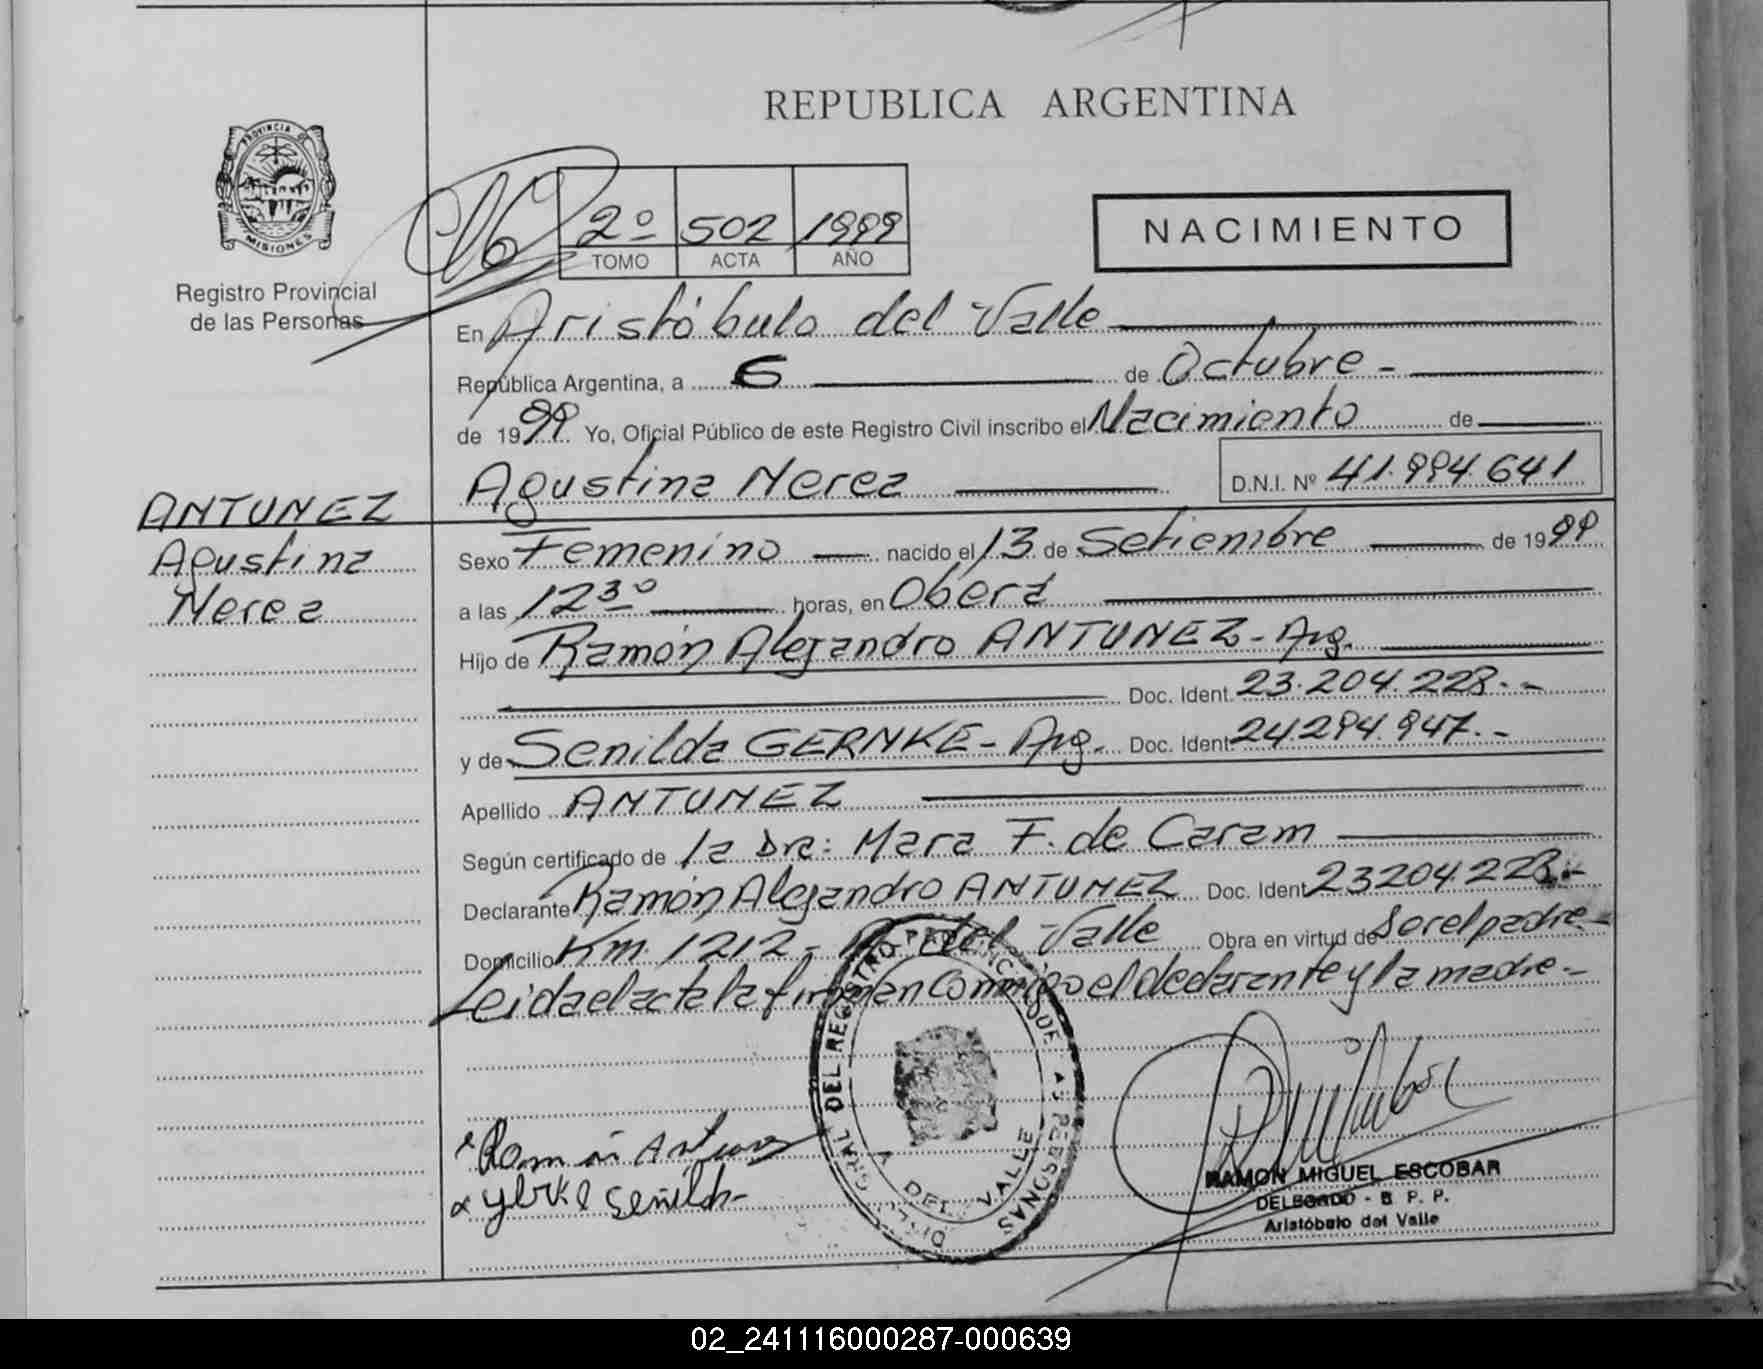 REPUBLICA ARGENTINA
PROVINCIA D
MISIONES
Registro Provincial
de las Personas
2º 502 1999
TOMO ACTA AÑO
NACIMIENTO
En Aristóbulo del Valle
República Argentina, a 6 de Octubre -
de 1999 Yo, Oficial Público de este Registro Civil inscribo el Nacimiento de
Agustina Nerea D.N.I. Nº 41.994.641
ANTUNEZ
Agustina
Nerea
Sexo Femenino nacido el 13 de Setiembre de 1999
a las 12 30 horas, en Oberá
Hijo de Ramón Alejandro ANTUNEZ - Arg.
Doc. Ident. 23.204.228.-
y de Senilda GERNKE - Arg. Doc. Ident. 24.294.947.-
Apellido ANTUNEZ
Según certificado de la Dra: Mara F. de Caram
Declarante Ramón Alejandro ANTUNEZ Doc. Ident. 23204228.-
Domicilio Km. 1212 - A. del Valle Obra en virtud de Ser el padre -
Leida el acta la firman Conmigo el declarante y la madre.-
DEL REGISTRO PROVINCIAL DE LAS PERSONAS
A. DEL VALLE
Ramón Antunez
Senilda
RAMON MIGUEL ESCOBAR
DELEGADO - R. P. P.
Aristóbulo del Valle
02_241116000287-000639